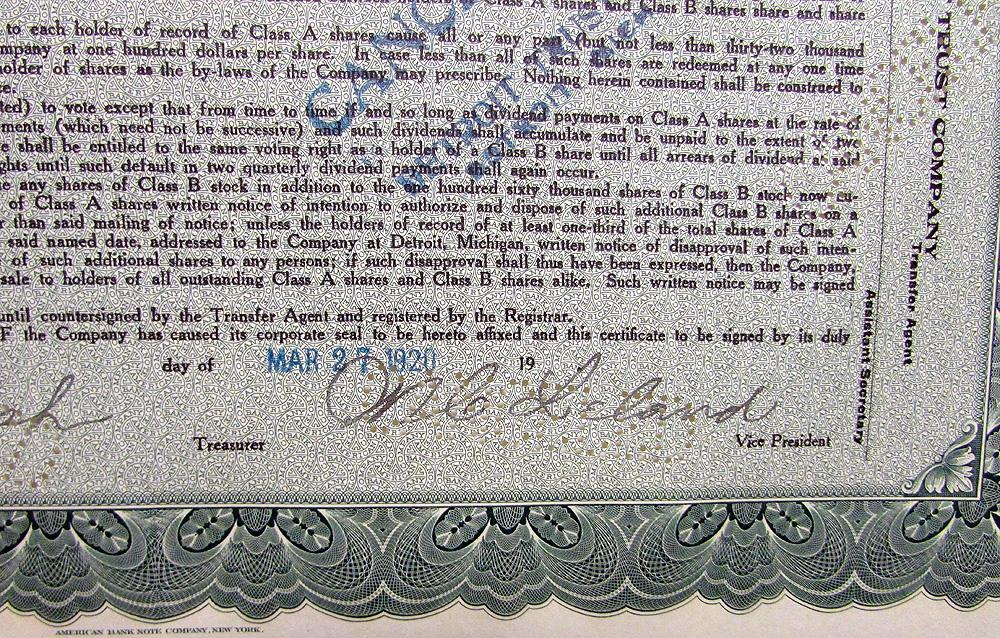 of Class A shares and Class B shares share and share
to each holder of record of Class A shares cause all or any part (but not less than thirty-two thousand
mpany at one hundred dollars per share. In case less than all of such shares are redeemed at any one time
holder of shares as the by-laws of the Company may prescribe. Nothing herein contained shall be construed to
e.
ted) to vote except that from time to time if and so long as dividend payments on Class A shares at the rate of
ments (which need not be successive) and such dividends shall accumulate and be unpaid to the extent of two
e shall be entitled to the same voting right as a holder of a Class B share until all arrears of dividend at said
ghts until such default in two quarterly dividend payments shall again occur.
e any shares of Class B stock in addition to the one hundred sixty thousand shares of Class B stock now au-
of Class A shares written notice of intention to authorize and dispose of such additional Class B shares on a
r than said mailing of notice; unless the holders of record of at least one-third of the total shares of Class A
said named date, addressed to the Company at Detroit, Michigan, written notice of disapproval of such inten-
of such additional shares to any persons; if such disapproval shall thus have been expressed, then the Company,
sale to holders of all outstanding Class A shares and Class B shares alike. Such written notice may be signed
until countersigned by the Transfer Agent and registered by the Registrar.
F the Company has caused its corporate seal to be hereto affixed and this certificate to be signed by its duly
day of MAR 27 1920 19
Treasurer
Vice President
TRUST COMPANY
Transfer Agent
Assistant Secretary
AMERICAN BANK NOTE COMPANY, NEW YORK.